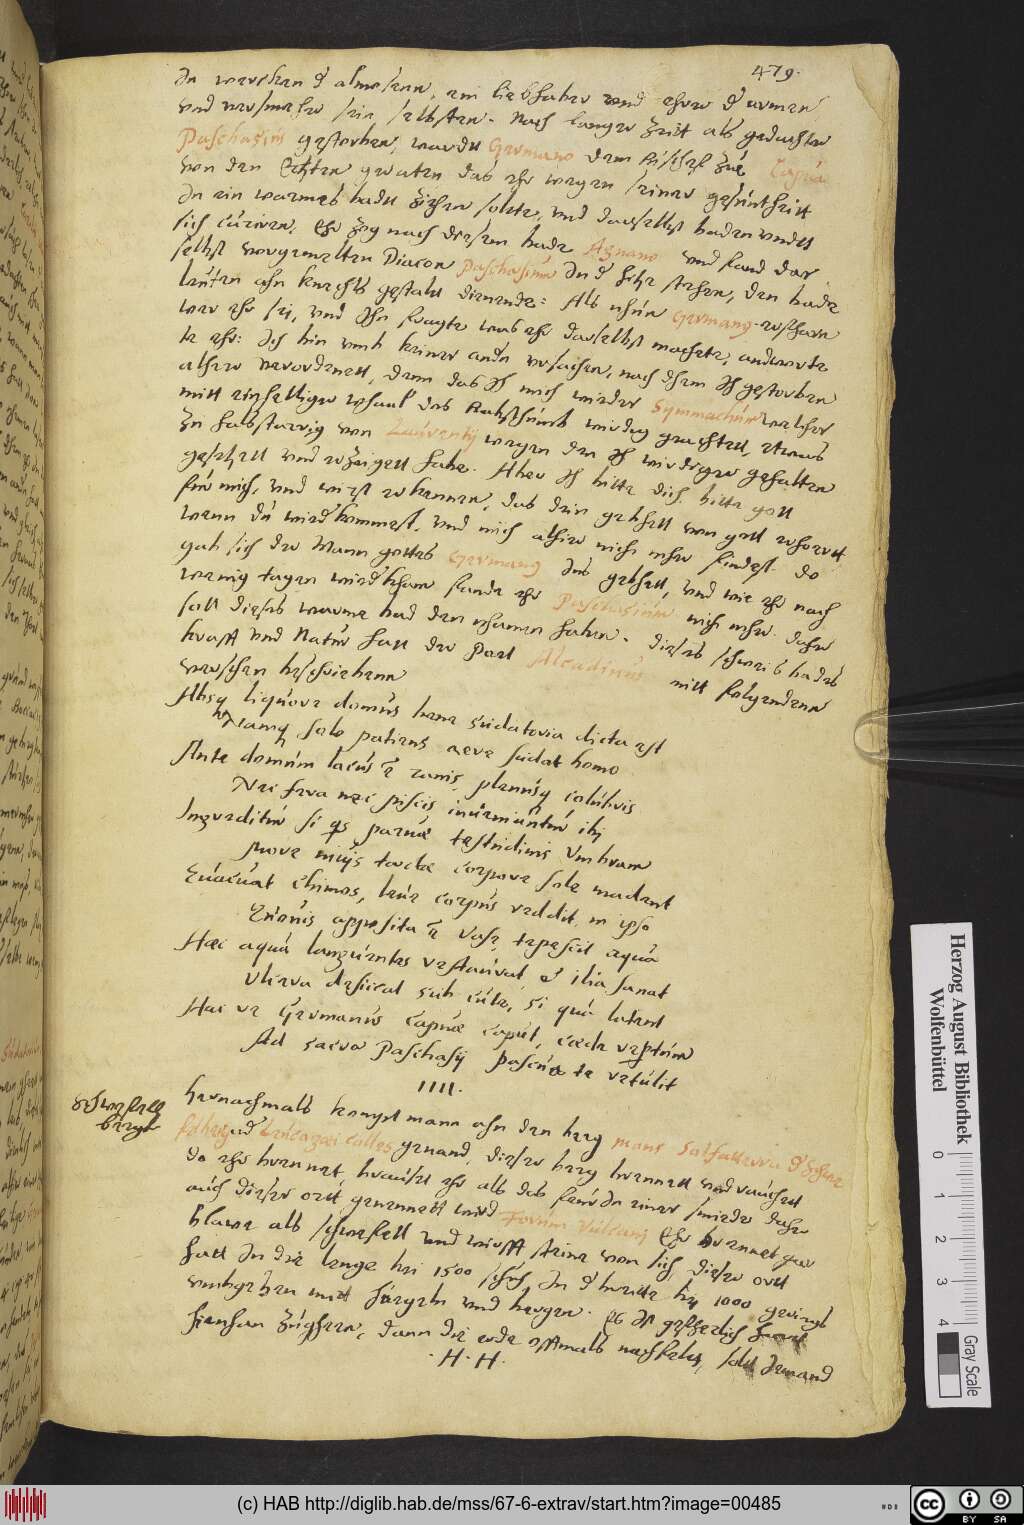 479.
In wercken d almosenn, ein liebhaber und ehrer d armen
und versmeher sein selbsten. Nach langer Zeitt als gedachter
Paschasius gestorben, wardtt Germano dem bischoff zu Capua
von den Ertzten geraten das ehr wegen seiner gesundtheitt
In ein warmes badtt zihen solte, und daselbst baden undtt
sich curiren, Ehr zog nach diesem bade Agnano und fand dar
selbst vorgemelten Diacon Paschasium In d hitze stehen, den bade
leuten ahn knechts gestaltt dienende: Als nhun Germang erfharn
wer ehr sei, und Ihn fragte was ehr daselbst machete, andtworte
te ehr: Ich bin umb keiner andn ursachen, nach dhem Ih gestorben
alhero verordenett, denn das Ih mich wieder Symmachum welcher
mitt einhelliger whaal des Babsthumb wirdig geachtett, etwas
zu halsstarrig von Laurentij wegen den Ih wirdiger gehalten
gesetzett und erzeigett habe. Aber Ih bitte dich, bitte gott
fur mich, und wirst erkennen, das dein gebhett von gott erhorett
wenn du wied kommest, und mich alhir nicht mher findest. do
gab sich der Mann gottes Germang Ins gebhett, und wie ehr nach
wenig tagen wied kham fande ehr Paschasium nicht mher. daher
soll dieses warme bad den nhamen haben. dieses schweis bades
krafft und Natur hatt der Poet Alcadinus mitt folgendenn
verschen beschriebenn
Absq liquore domus bene sudatoria dicta est
Namq solo patiens aere sudat homo
Ante domum lacus e ranis, plenusq colubris
Nec fera nec piscis inveniuntur ibj
Ingreditur si qs parvae testudinis Umbram
More nivis tactae corpora sole madent
Evacuat chimos, leve corpus reddit, in ipso
Enervis apposita e vase, tepescit aqua
Haec aqua languentes restaurat, et ilia sanat
Ulcera desiccat sub cute, si qua latent
Hac re Germanus Capuae caput, ecce repertum
Ad sacra Paschasij pascua te retulit
IIII.
Schwefell
bergk
Hernachmals kompt mann ahn den berg mons Solfatterria d schwe
felberg ud Leucogaei colles genand, dieser berg brennett und rauchett
do ehr brennet, brauset ehr als das feur In einer smiede daher
auch dieser ortt genennett wird Forum Vulcanj Ehr brennet gar
blawe als schwefell und wirfft steine von sich, dieser ortt
hatt In die lenge bei 1500 schuh, In d breitte bej 1000 geringst
umbgeben mitt hugeln und bergen. Es Ist gefherlich
hienhan zugheen, dann die erde offtmals nachfelt, solt Iemand
. H. H.
Herzog August Bibliothek
Wolfenbüttel
0
1
2
3
4
Gray Scale
(c) HAB http://diglib.hab.de/mss/67-6-extrav/start.htm?image=00485
cc
BY SA